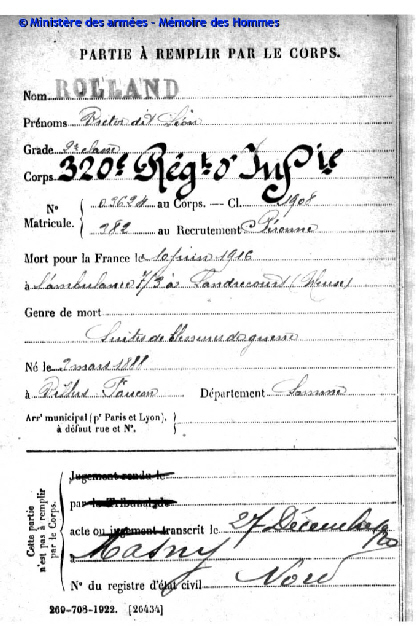 © Ministère des armées - Mémoire des Hommes
PARTIE À REMPLIR PAR LE CORPS.
Nom ROLLAND
Prénoms Victor dit Léon
Grade 2e classe
Corps 320e Régt d'Infie
N° Matricule. { 03624 au Corps. — Cl. 1908
282 au Recrutement Péronne
Mort pour la France le 10 juin 1916
à l'ambulance 7/3 à Landrecourt (Meuse)
Genre de mort
Suites de blessures de guerre
Né le 2 mars 1888
à Département Somme
Arrt municipal (pr Paris et Lyon), à défaut rue et N°. {
Cette partie n'est pas à remplir par le Corps.
Jugement rendu le
par le Tribunal de
acte ou jugement transcrit le 27 Décembre
à Masny
Nord
N° du registre d'état civil
269-708-1922. [26434]